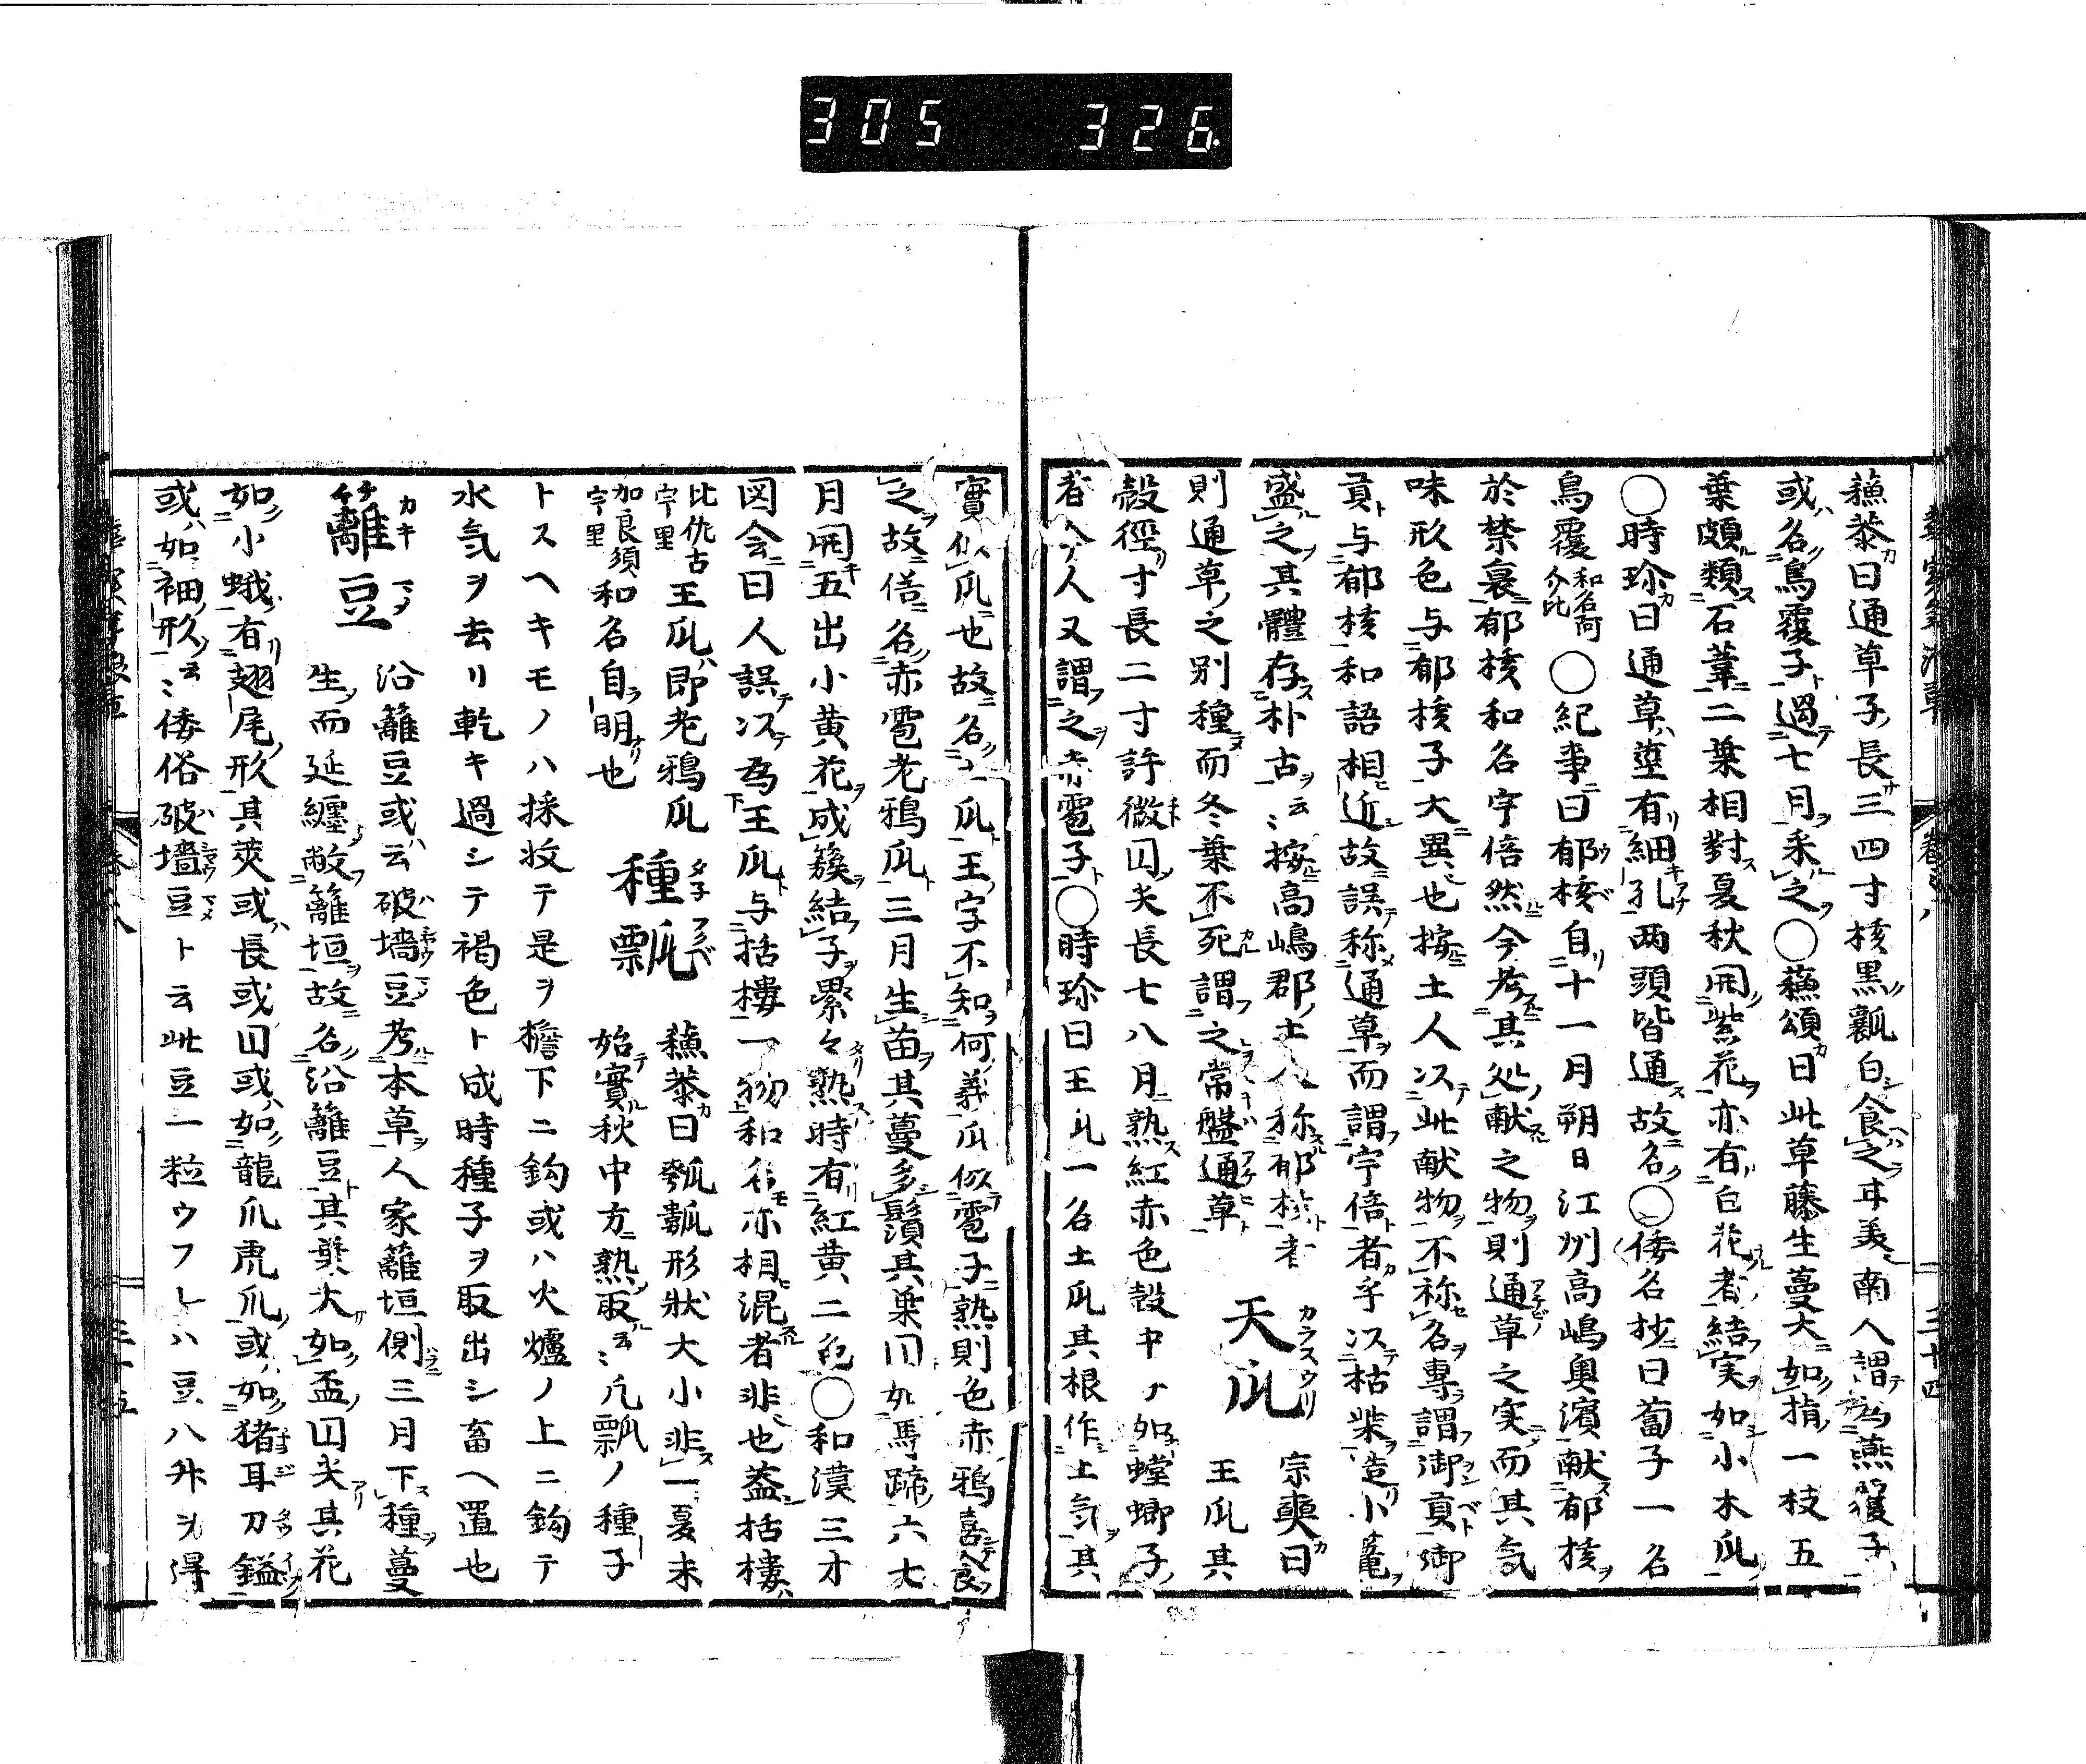 305 326
蘓恭曰通草子長三四寸核黒瓤白食之甘美南人謂為燕覆子
或名烏覆子遇七月采之〇蘓頌曰此草藤生蔓大如指一枝五
葉頗類石葦二葉相對夏秋開紫花亦有白花者結実如小木瓜
〇時珍曰通草莖有細孔两頭皆通故名〇倭名抄曰蔔子一名
烏覆和名阿介比〇紀事曰郁核自十一月朔日江州高嶋奥濱献郁核
於禁裏郁核和名宇倍然今考其処献之物則通草之実而其気
味形色与郁核子大異也按土人以此献物不称名専謂御貢御
貢与郁核和語相近故誤称通草而謂宇倍者乎以枯柴造小篭
盛之其體存朴古云々按高嶋郡土人称郁核者
則通草之別種而冬葉不死謂之常盤通草
天瓜 カラスウリ
宗奭曰王瓜其
殻徑寸長二寸許微囙尖長七八月熟紅赤色殻中ノ如螳螂子
者今人又謂之赤雹子〇時珍曰王瓜一名土瓜其根作土気其
實似瓜也故名土瓜王字不知何義瓜似雹子熟則色赤鴉喜食
之故俗名赤雹老鴉瓜三月生苗其蔓多鬚其葉囙如馬蹄六七
月開五出小黄花成簇結子累々熟時有紅黄二色〇和漢三才
図会曰人誤以為王瓜与括樓一物和名亦相混者非也蓋括樓
比佐古宇里王瓜即老鴉瓜
加良須宇里和名自明也
種瓢 タ子フクベ
蘓恭曰瓠瓤形状大小非一夏末
始實秋中方熟取云々凡瓢ノ種子
トスヘキモノハ採收テ是ヲ檐下ニ鈎或ハ火爐ノ上ニ鈎テ
水気ヲ去リ乾キ過シテ褐色ト成時種子ヲ取出シ畜ヘ置也
籬豆 カキマメ
沿籬豆或云破墻豆考本草人家籬垣側三月下種蔓
生而延纏敝籬垣故名沿籬豆其葉大如盃囙尖其花
如小蛾有翅尾形其莢或長或囙或如龍爪虎爪或如猪耳刀鎰
或如袖形云々倭俗破墻豆ト云此豆一粒ウフレハ豆八升ヲ得